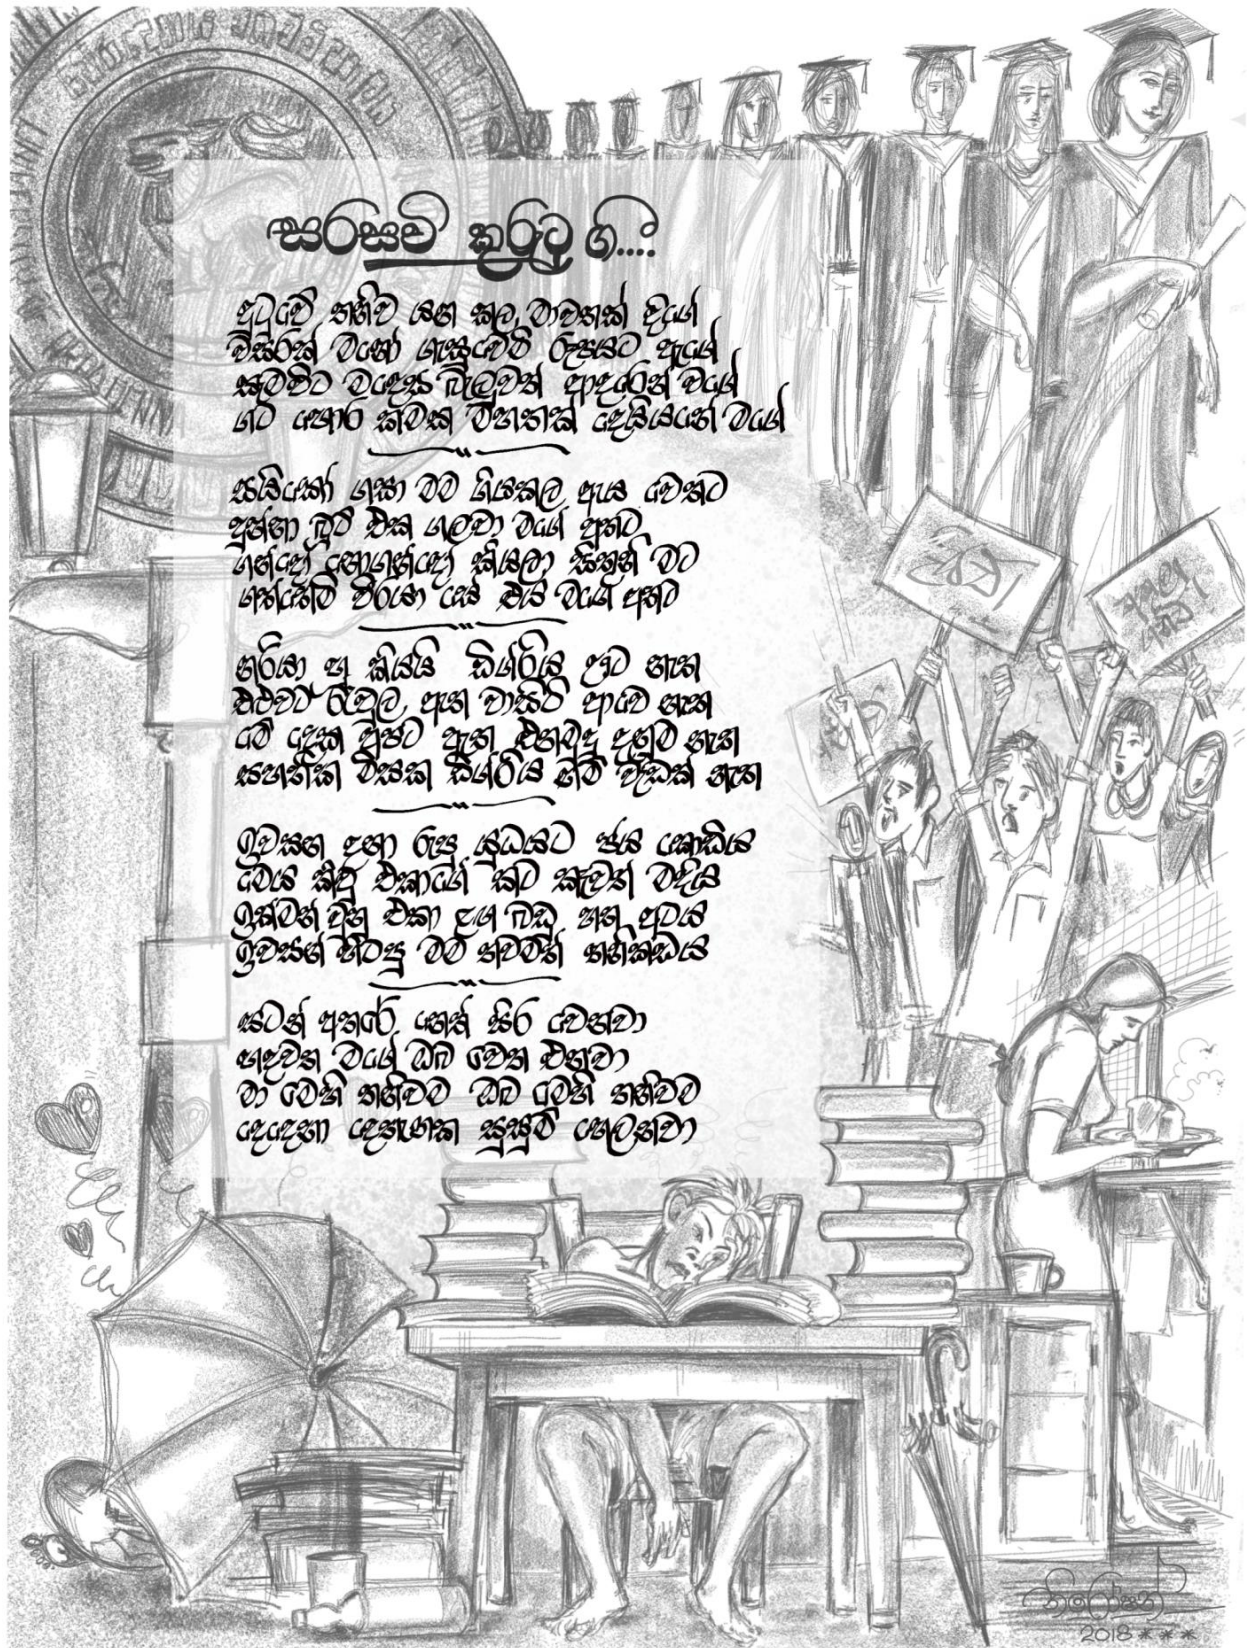 සරසවි කුරුටු ගී....
පුටුවේ තනිව යන කල මාවතක් දිගේ
විසිරක් මගේ ගැසුවෙමි රූපයට ඇගේ
සැමවිට මදෙස බැලුවත් ආදරෙන් වගේ
ගට හොර කමක මහතක් දෙයියනේ මගේ
සයිකෝ ගසා මම ගියකල ඇය වෙතට
දුන්නා බුටි එක ගලවා මගේ අතට
ගන්දෝ නොගන්දෝ කියලා සිතුනි මට
ගත්තෙමි වීරයා සේ එය මගේ අතට
නරියා හූ කියයි ඩිග්රිය උට නැත
එළුවට රැවුල ඇත වාසිටි ආවෙ නැත
මේ දෙක අපට ඇත එනමුදු දැනුම නැත
සහතික මිසක ඩිග්රිය ගම් වැඩක් නැත
ඉවසන දනා රුපු යුධයට ජය කොඩිය
මෙය කිව් එකාගේ කට කැවත් මදිය
ඉක්මන් වුනු එකා ළග බඩු හත අටය
ඉවසගෙ හිටපු මම තවමත් තනිකඩය
සටන් අතරේ නෙත් සිර වෙනවා
හදවත මගේ ඔබ වෙත එනවා
මා මෙහි තනිවම ඔබ එමහි තනිවම
දෙදෙනා දෙතැනක සුසුම් හෙලනවා
2018